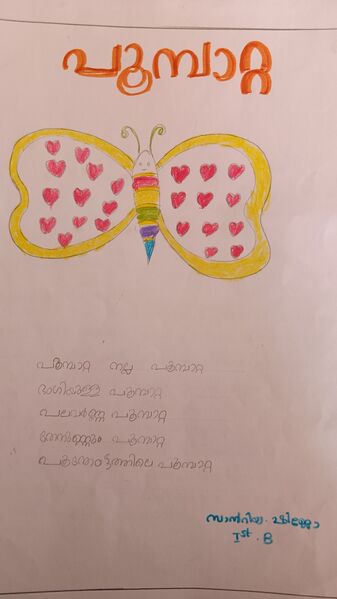 പൂമ്പാറ്റ
പൂമ്പാറ്റ നല്ല പൂമ്പാറ്റ
ഭംഗിയുള്ള പൂമ്പാറ്റ
പലവർണ്ണ പൂമ്പാറ്റ
തേനുണ്ണും പൂമ്പാറ്റ
പൂന്തോട്ടത്തിലെ പൂമ്പാറ്റ
സാൻറിയ.
Ist . B